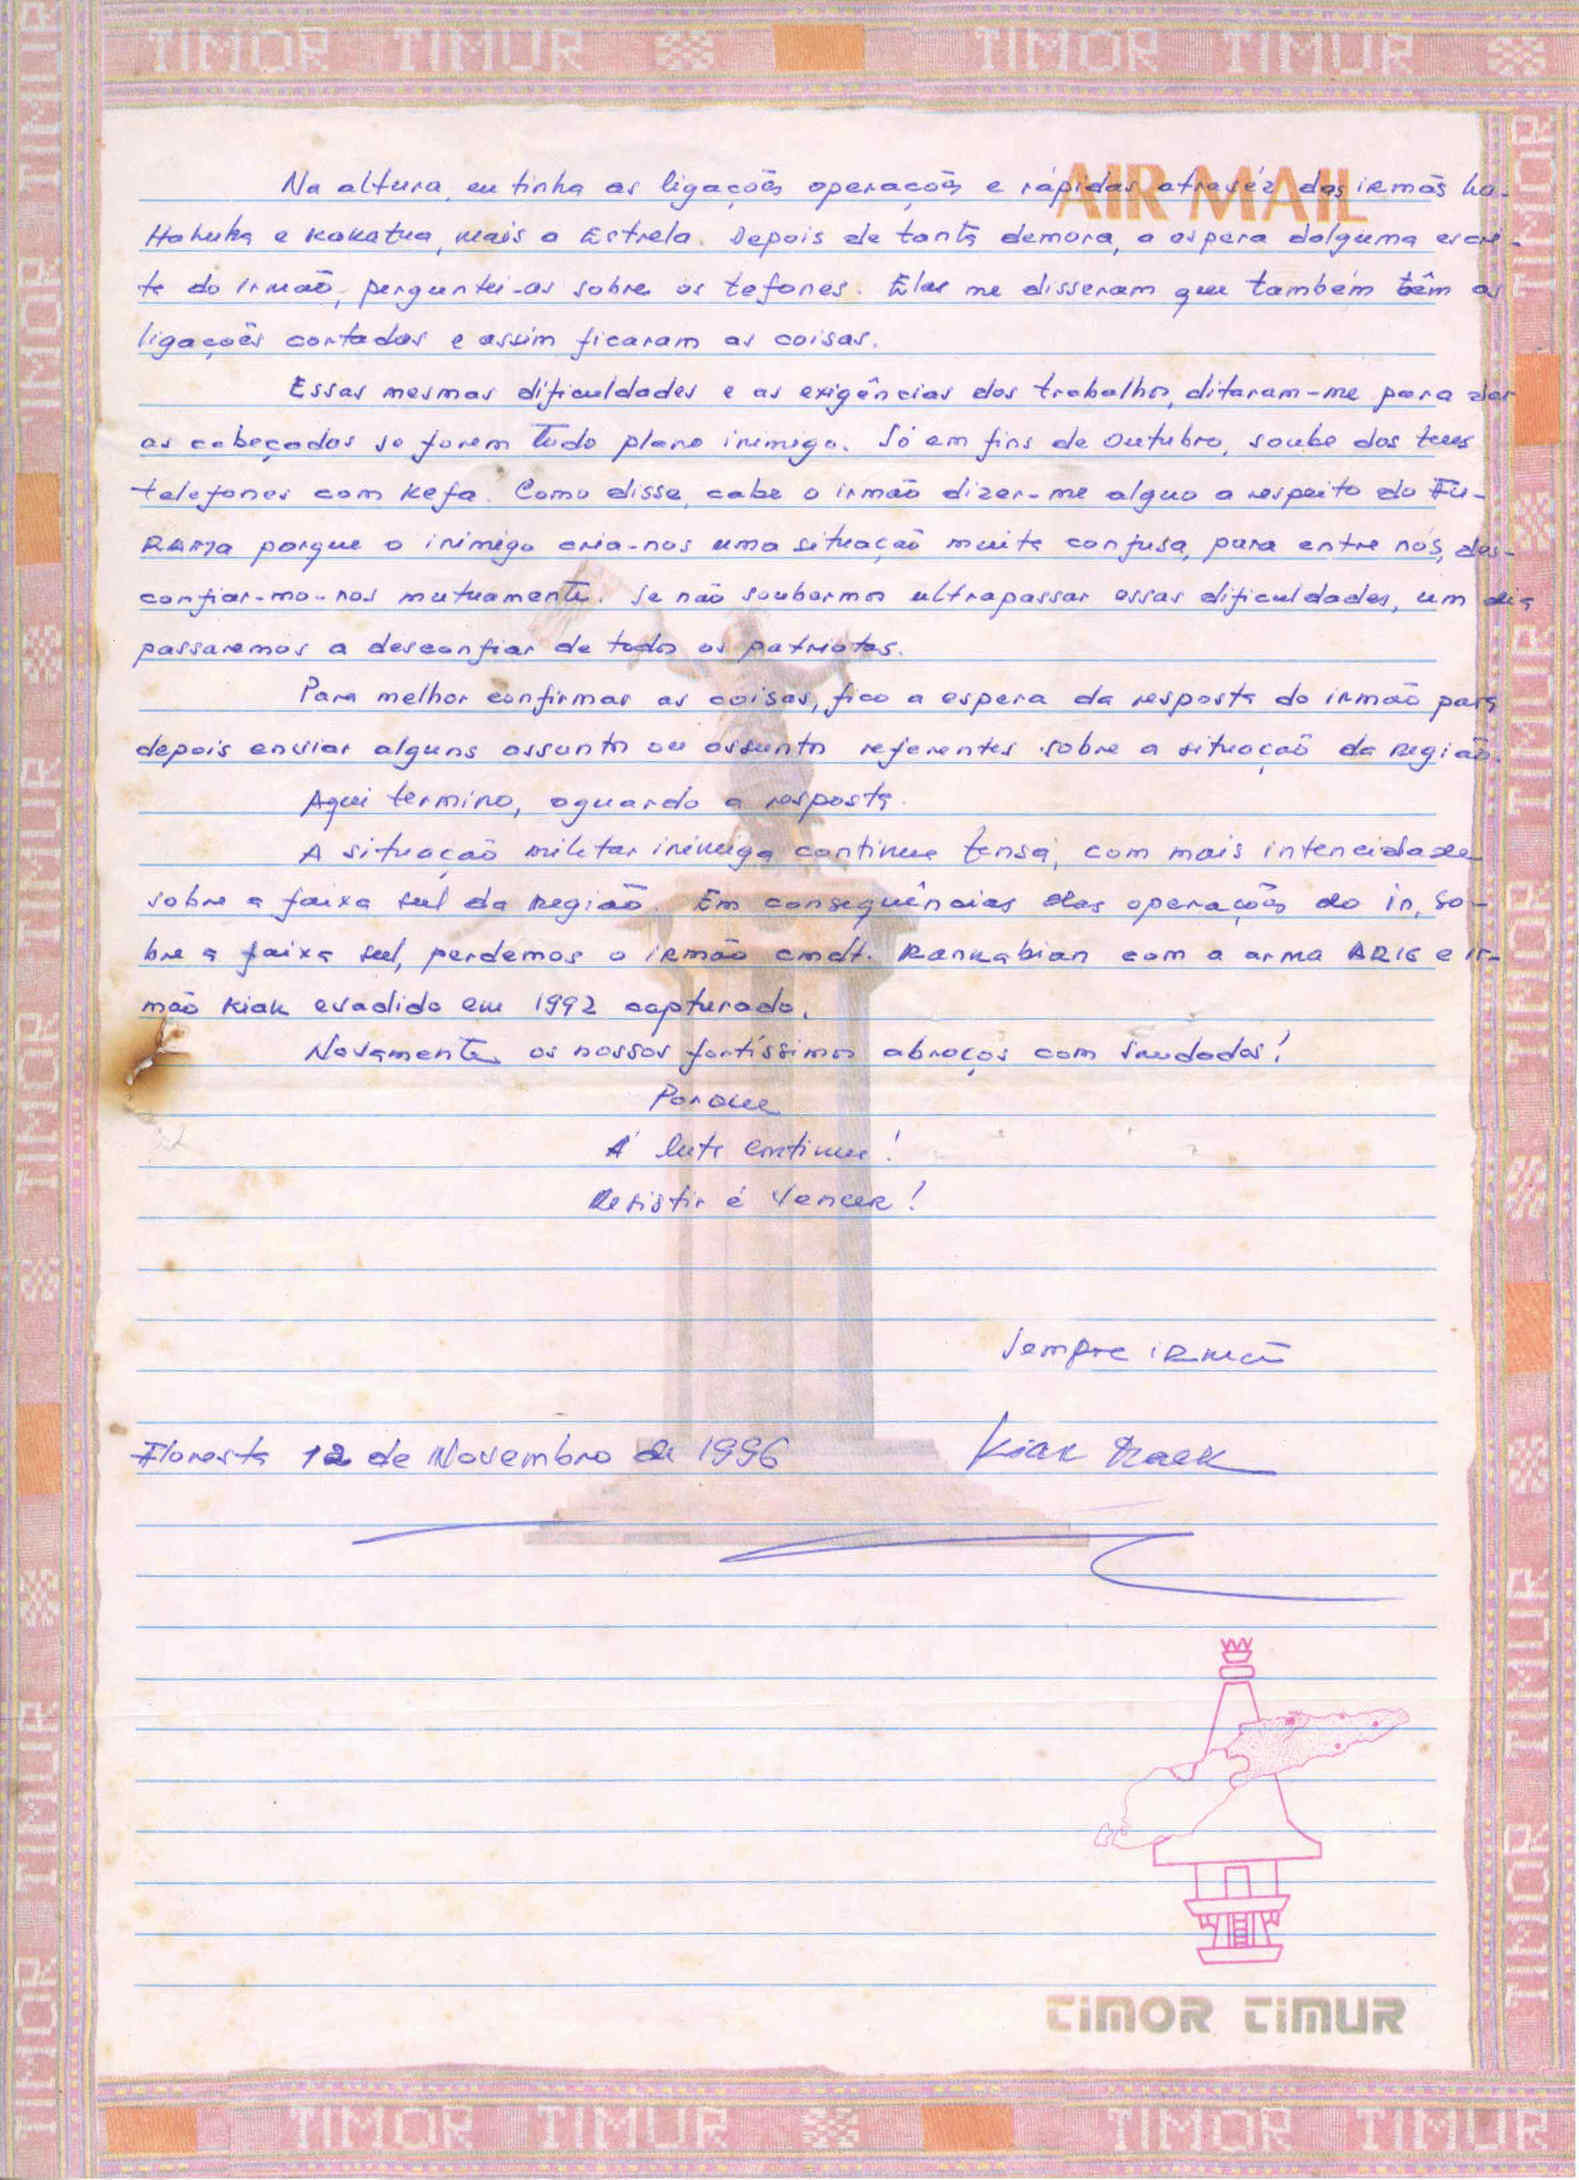 TIMOR TIMUR TIMOR TIMUR
AIR MAIL
Na altura, eu tinha as ligações operações e rápidas atravéz das irmãs ha-
Hahuka e Kakatua, mais a Estrela. Depois de tanta demora, a espera dalguma escri-
te do irmão, perguntei-as sobre os tefones. Elas me disseram que também têm as
ligações cortadas e assim ficaram as coisas.
Essas mesmas dificuldades e as exigências dos trabalhos, ditaram-me para dar
as cabeçadas se forem tudo plano inimigo. Só em fins de Outubro, soube dos teus
telefones com Kefa. Como disse, cabe o irmão dizer-me alguo a respeito do Fu-
RAMA porque o inimigo cria-nos uma situação muita confusa, para entre nós, des-
confiar-mo-nos mutuamente. Se não soubermos ultrapassar essas dificuldades, um dia
passaremos a desconfiar de todos os patriotas.
Para melhor confirmar as coisas, fico a espera da resposta do irmão para
depois enviar alguns assunto ou assunto referentes sobre a situação da região.
Aqui termino, aguardo a resposta.
A situação militar inimiga continua tensa, com mais intencidade
sobre a faixa sul da Região. Em consequências das operações do in, so-
bre a faixa sul, perdemos o irmão cmdt. Rankabian com a arma AR16 e ir-
mão Kiak evadido em 1992 capturado.
Novamente os nossos fortíssimos abraços com saudades!
Porque
A luta continua!
Resistir é Vencer!
Sempre irmão
Floresta 12 de Novembro de 1996 Kiak
TIMOR TIMUR
TIMOR TIMUR TIMOR TIMUR